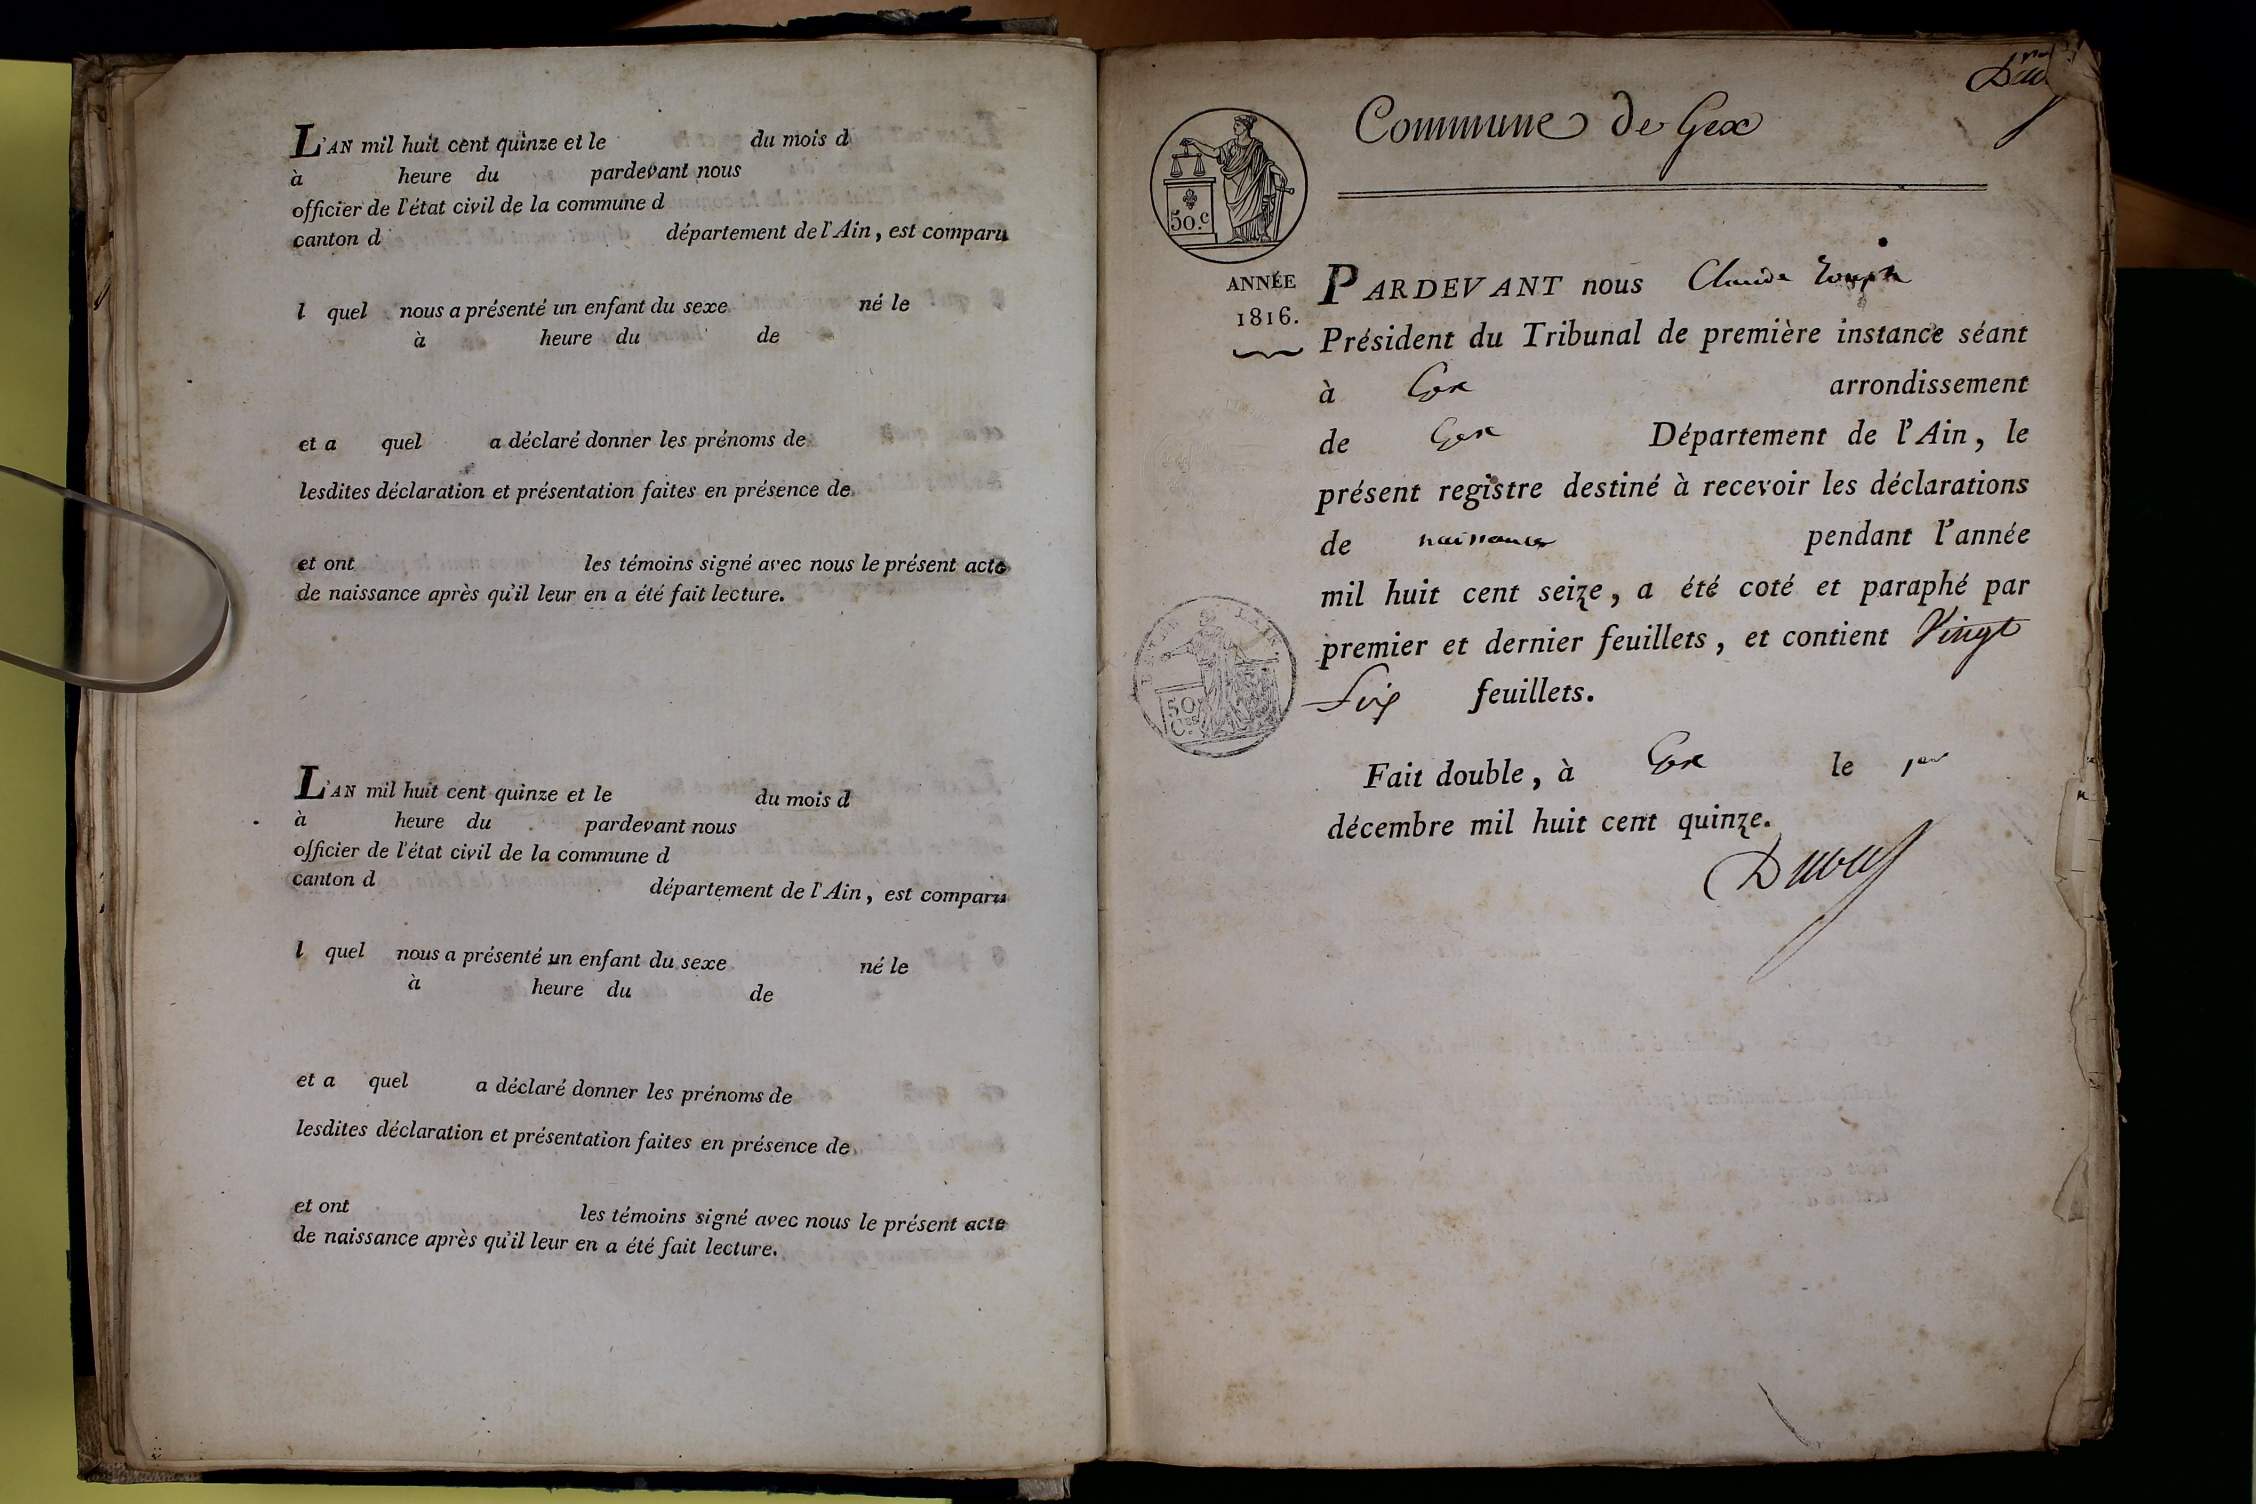 L'AN mil huit cent quinze et le du mois d
à heure du pardevant nous
officier de l'état civil de la commune d
canton d département de l'Ain, est comparu
l quel nous a présenté un enfant du sexe né le
à heure du de
et a quel a déclaré donner les prénoms de
lesdites déclaration et présentation faites en présence de
et ont les témoins signé avec nous le présent acte
de naissance après qu'il leur en a été fait lecture.
L'AN mil huit cent quinze et le du mois d
à heure du pardevant nous
officier de l'état civil de la commune d
canton d département de l'Ain, est comparu
l quel nous a présenté un enfant du sexe né le
à heure du de
et a quel a déclaré donner les prénoms de
lesdites déclaration et présentation faites en présence de
et ont les témoins signé avec nous le présent acte
de naissance après qu'il leur en a été fait lecture.
Commune de Gex
50.c
ANNÉE
1816.
PARDEVANT nous Claude
Président du Tribunal de première instance séant
à Gex arrondissement
de Gex Département de l'Ain, le
présent registre destiné à recevoir les déclarations
de naissances pendant l'année
mil huit cent seize, a été coté et paraphé par
premier et dernier feuillets, et contient Vingt
Six feuillets.
50
Cs
Fait double, à Gex le 1er
décembre mil huit cent quinze.